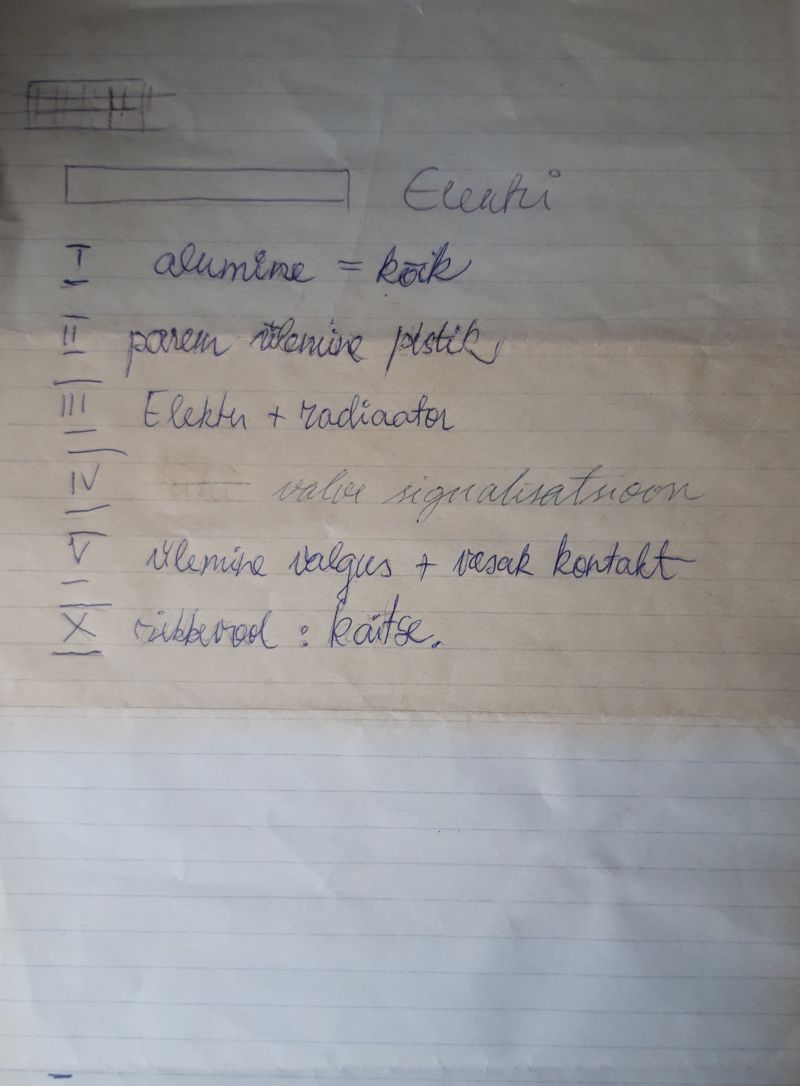 Elektri
I alumine = kõik
II parem ülemine pistik
III Elektri + radiaator
IV valve signalisatsioon
V ülemine valgus + vasak kontakt
X rikkevool : kaitse.